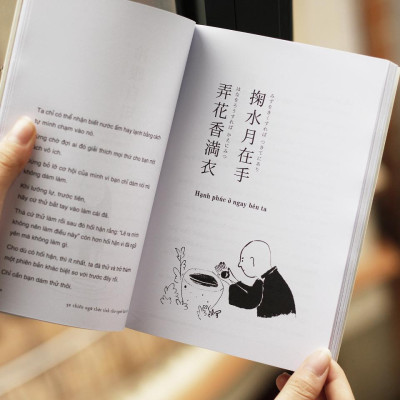 Ta chỉ có thể nhận biết nước ấm hay lạnh bằng cách
tự mình chạm vào nó.
chờ đợi ai đó giải thích mọi thứ cho bạn
vô ích.
bỏ lỡ cơ hội của mình vì bạn chỉ dám nói mà
không dám làm.
trước tiên,
cứ thử bắt tay vào làm cái đã.
Thà cứ thử làm rồi sau đó hối hận rằng: "Lẽ ra mình
không nên làm điều này" còn hơn hối hận vì đã ngồi
yên mà không làm gì.
Cho dù có hối hận, thì ít nhất, ta đã thử và trở thành
một phiên bản khác biệt so với trước đây rồi.
Chỉ cần bạn dám thử thôi.
掬水月在手
弄花香満衣
Hạnh phúc ở ngay bên ta